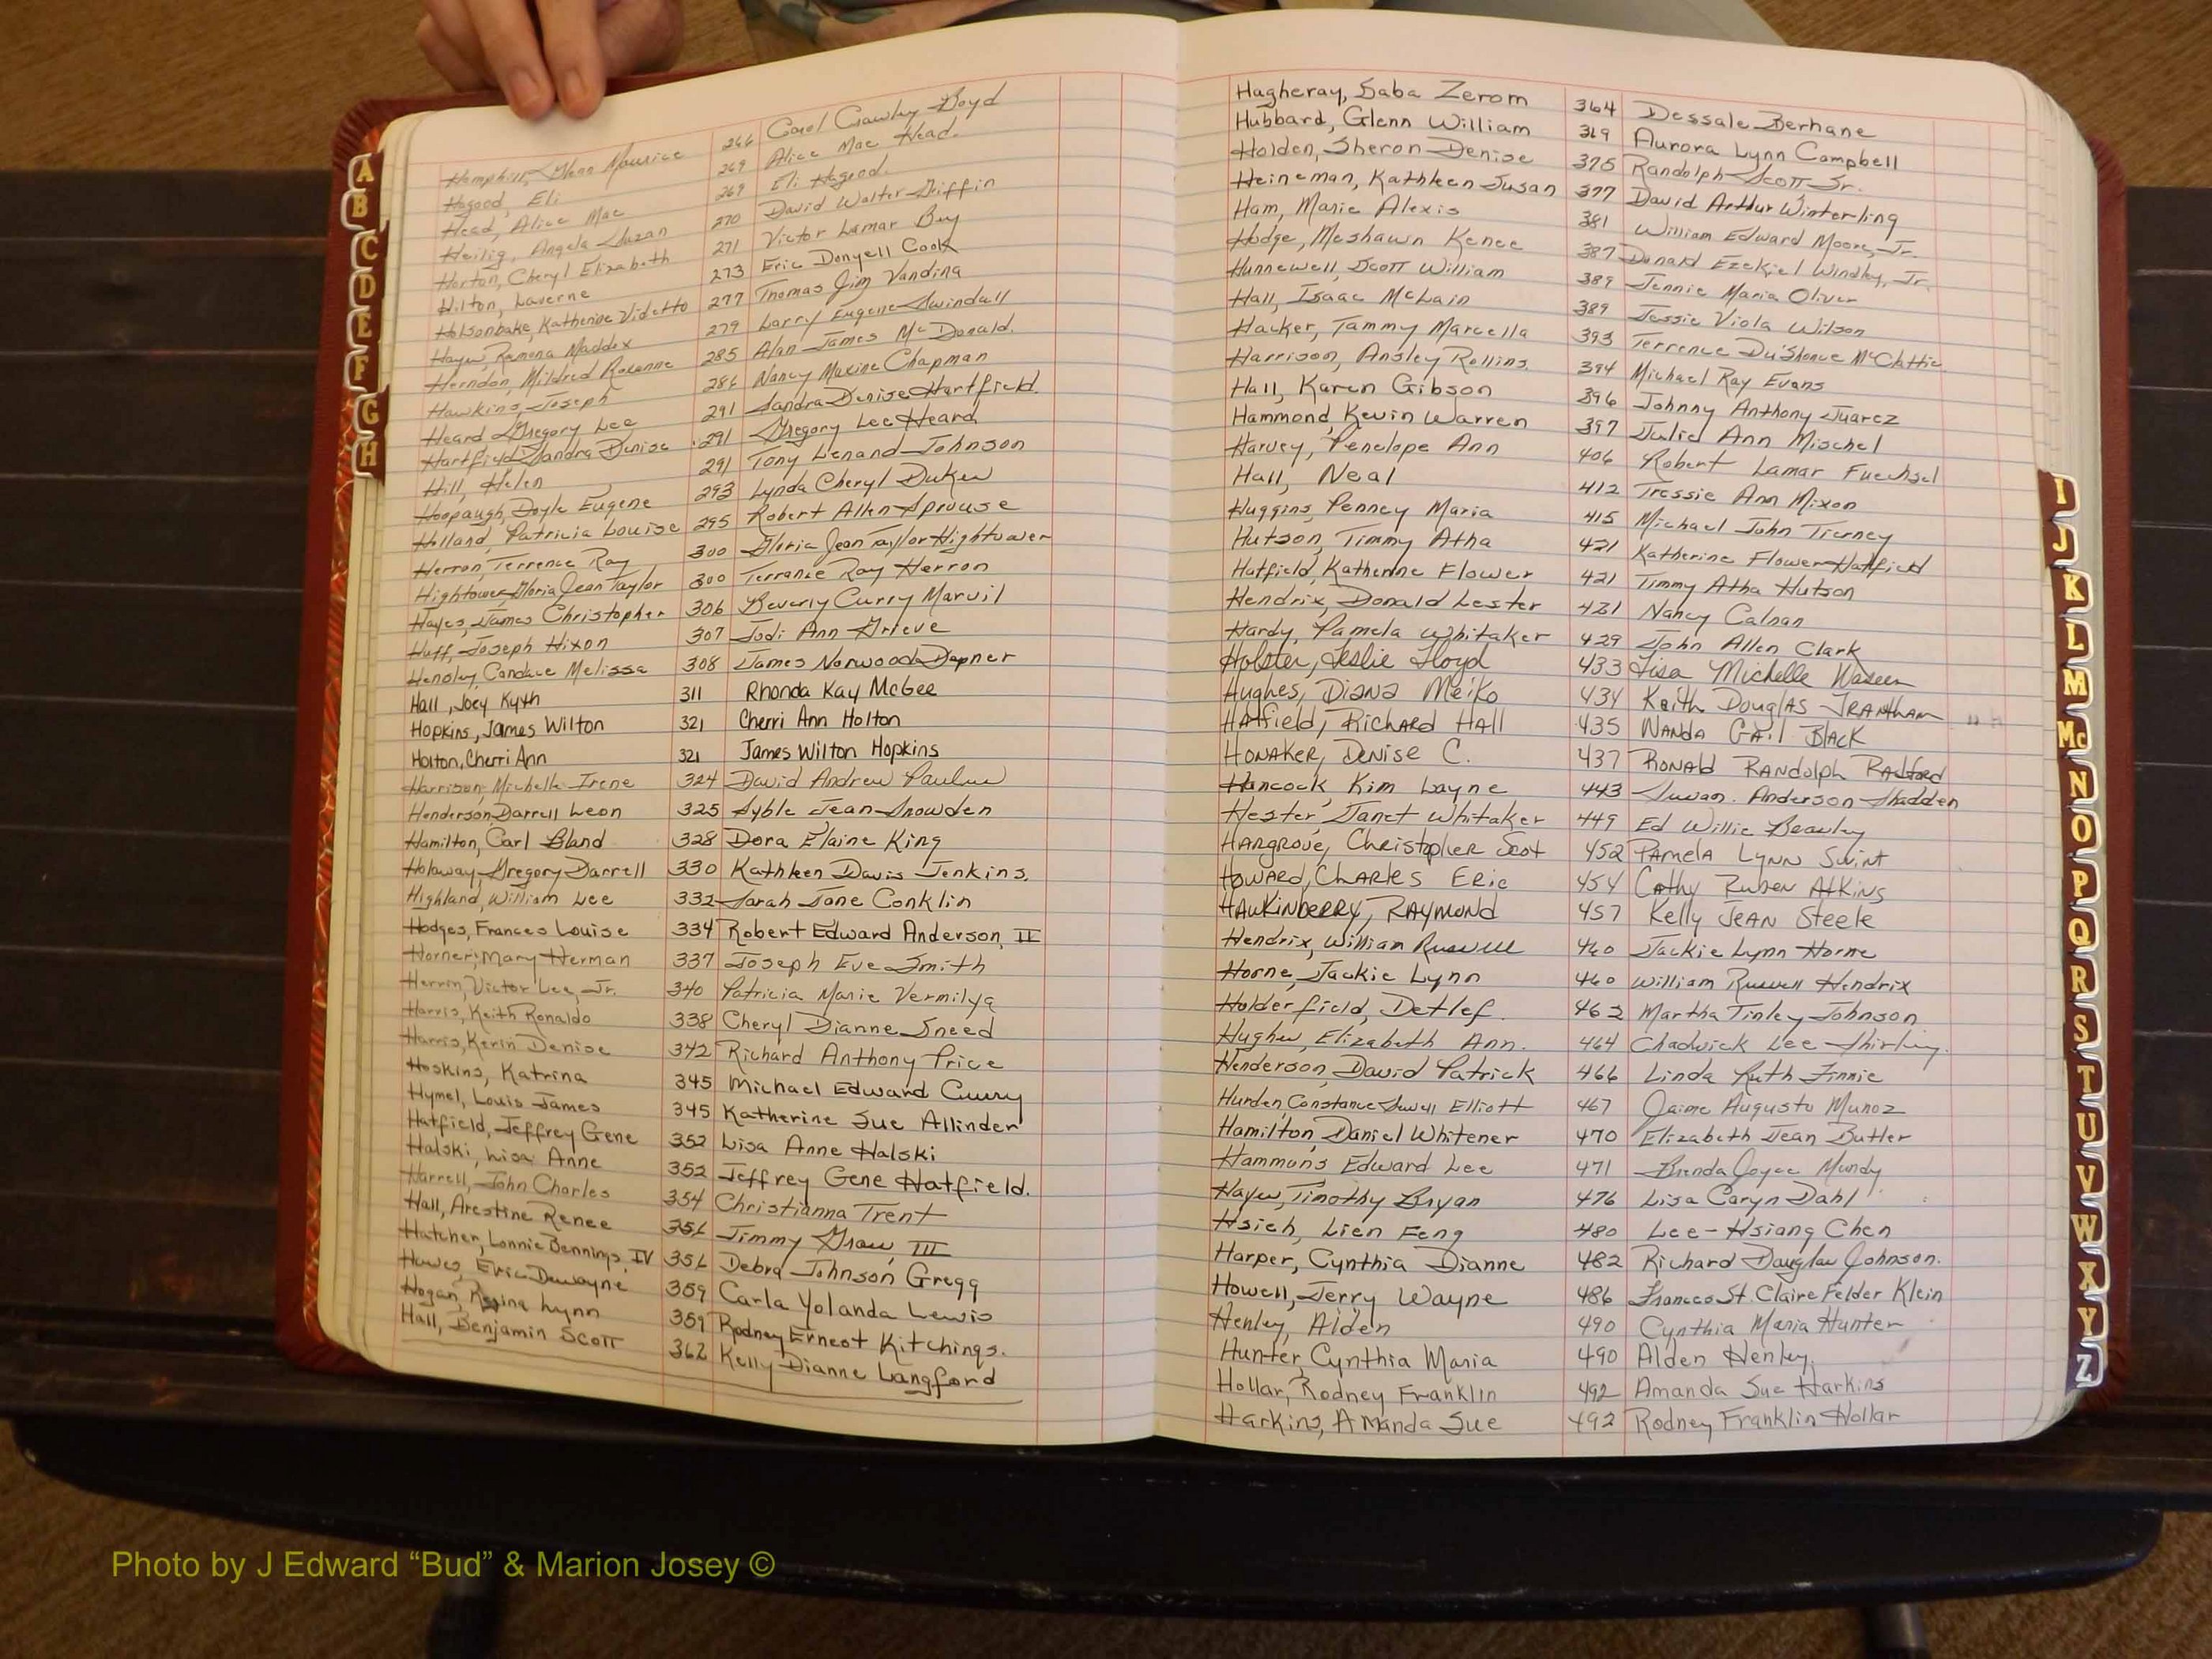 A
B
C
D
E
F
G
H
Hemphill, Glenn Maurice 266 Carol Crawley Boyd
Hagood, Eli 269 Alice Mae Head.
Head, Alice Mae 269 Eli Hagood.
Heilig, Angela Suzan 270 David Walter Griffin
Horton, Cheryl Elizabeth 271 Victor Lamar Buy
Hilton, Laverne 273 Eric Donyell Cook
Holsonbake, Katherine Videtto 277 Thomas Jim Vandina
Hayes, Ramona Maddox 279 Larry Eugene Swindall
Herndon, Mildred Roxanne 285 Alan James McDonald.
Hawkins, Joseph 286 Nancy Maxine Chapman
Heard, Gregory Lee 291 Sandra Denise Hartfield.
Hartfield, Sandra Denise 291 Gregory Lee Heard
Hill, Helen 291 Tony Lenand Johnson
Hoopaugh, Doyle Eugene 293 Lynda Cheryl Dukes
Holland, Patricia Louise 295 Robert Allen Sprouse
Herron, Terrence Ray 300 Gloria Jean Taylor Hightower
Hightower, Gloria Jean Taylor 300 Terrance Ray Herron
Hayes, James Christopher 306 Beverly Curry Marvil
Huff, Joseph Hixon 307 Jodi Ann Grieve
Hensley, Candace Melissa 308 James Norwood Dapner
Hall, Joey Kyth 311 Rhonda Kay McGee
Hopkins, James Wilton 321 Cherri Ann Holton
Holton, Cherri Ann 321 James Wilton Hopkins
Harrison, Michelle Irene 324 David Andrew
Henderson, Darrell Leon 325 Syble Jean Snowden
Hamilton, Carl Bland 328 Dora Elaine King
Holoway, Gregory Darrell 330 Kathleen Davis Jenkins.
Highland, William Lee 332 Sarah Jane Conklin
Hodges, Frances Louise 334 Robert Edward Anderson, II
Horner, Mary Herman 337 Joseph Eve Smith
Herrin, Victor Lee, Jr. 340 Patricia Marie Vermilya
Harris, Keith Ronaldo 338 Cheryl Dianne Sneed
Harris, Kerin Denise 342 Richard Anthony Price
Hoskins, Katrina 345 Michael Edward Curry
Hymel, Louis James 345 Katherine Sue Allinder
Hatfield, Jeffrey Gene 352 Lisa Anne Halski
Halski, Lisa Anne 352 Jeffrey Gene Hatfield.
Harrell, John Charles 354 Christianna Trent
Hall, Arestine Renee 356 Jimmy Graw, III
Hatcher, Lonnie Bennings, IV 356 Debra Johnson Gregg
Hawes, Eric Dewayne 359 Carla Yolanda Lewis
Hogan, Regina Lynn 359 Rodney Ernest Kitchings.
Hall, Benjamin Scott 362 Kelly Dianne Langford
Hagheray, Saba Zerom 364 Dessale Berhane
Hubbard, Glenn William 369 Aurora Lynn Campbell
Holden, Sheron Denise 375 Randolph Scott Sr.
Heineman, Kathleen Susan 377 David Arthur Winterling
Ham, Marie Alexis 381 William Edward Moore, Jr.
Hodge, Meshawn Renee 387 Donald Ezekiel Windley, Jr.
Hunnewell, Scott William 389 Jennie Maria Oliver
Hall, Isaac McLain 389 Jessie Viola Wilson
Hacker, Tammy Marcella 393 Terrence Du'Shonce McClattie
Harrison, Ansley Rollins. 394 Michael Ray Evans
Hall, Karen Gibson 396 Johnny Anthony Juarez
Hammond, Kevin Warren 397 Julie Ann Mischel
Harvey, Penelope Ann 406 Robert Lamar Fuechsel
Hall, Neal 412 Tressie Ann Mixon
Huggins, Penney Maria 415 Michael John Tierney
Hutson, Timmy Atha 421 Katherine Flower Hatfield
Hatfield, Katherine Flower 421 Timmy Atha Hutson
Hendrix, Donald Lester 421 Nancy Calnan
Hardy, Pamela Whitaker 429 John Allen Clark
Holster, Leslie Lloyd 433 Lisa Michelle
Hughes, Diana Meiko 434 Keith Douglas Trantham
Hatfield, Richard Hall 435 Wanda Gail Black
Honaker, Denise C. 437 Ronald Randolph Radford
Hancock, Kim Layne 443 Susan Anderson Shadden
Hester, Janet Whitaker 449 Ed Willie Beasley
Hargrove, Christopher Scot 452 Pamela Lynn Swint
Howard, Charles Eric 454 Cathy Ruben Atkins
Hawkinberry, Raymond 457 Kelly Jean Steele
Hendrix, William Russell 460 Jackie Lynn Horne
Horne, Jackie Lynn 460 William Russell Hendrix
Holderfield, Detlef. 462 Martha Tinley Johnson
Hughes, Elizabeth Ann. 464 Chadwick Lee Shirley.
Henderson, David Patrick 466 Linda Ruth Finnie
Hurden, Constance Sewell Elliott 467 Jaime Augusto Munoz
Hamilton, Daniel Whitener 470 Elizabeth Jean Butler
Hammons Edward Lee 471 Brenda Joyce Mundy
Hayes, Timothy Bryan 476 Lisa Caryn Dahl
Hsieh, Lien Feng 480 Lee-Hsiang Chen
Harper, Cynthia Dianne 482 Richard Douglas Johnson.
Howell, Jerry Wayne 486 Frances St. Claire Felder Klein
Henley, Alden 490 Cynthia Maria Hunter
Hunter, Cynthia Maria 490 Alden Henley
Hollar, Rodney Franklin 492 Amanda Sue Harkins
Harkins, Amanda Sue 492 Rodney Franklin Hollar
I
J
K
L
M
Mc
N
O
P
Q
R
S
T
U
V
W
X
Y
Z
Photo by J Edward “Bud” & Marion Josey ©